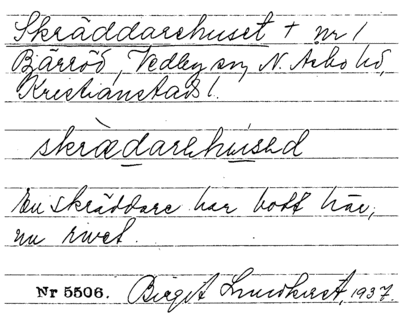 Skräddarehuset + nr 1
Bärröd, Vedby sn, N. Åsbo hd,
Kristianstads l.
skrædarehused
En skräddare har bott här,
nu rivet.
Nr 5506. Birgit Lundkvist, 1937.